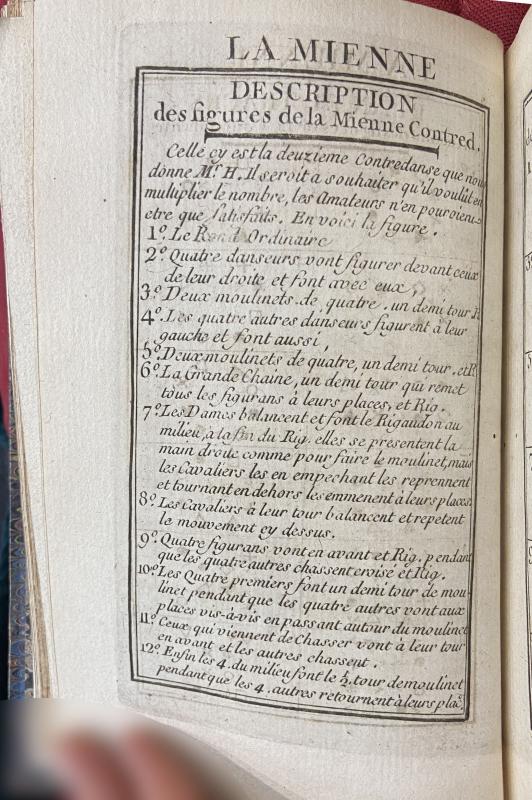 LA MIENNE
DESCRIPTION
des figures de la Mienne Contred.
Celle cy est la deuzieme Contredanse que nous
donne Mr. H. Il seroit a souhaiter qu'il voulût en
multiplier le nombre, les Amateurs n'en pouroient
etre que satisfaits. En voici la figure.
1º. Le Rond Ordinaire
2º. Quatre danseurs vont figurer devant ceux
de leur droite et font avec eux,
3º. Deux moulinets de quatre, un demi tour
4º. Les quatre autres danseurs figurent à leur
gauche et font aussi,
5º. Deux moulinets de quatre, un demi tour, et R
6º. La Grande Chaine, un demi tour qui remet
tous les figurans à leurs places, et Rig.
7º. Les Dames balancent et font le Rigaudon au
milieu, à la fin du Rig. elles se presentent la
main droite comme pour faire le moulinet, mais
les Cavaliers les en empechant les reprennent
et tournant en dehors les emmenent à leurs places.
8º. Les Cavaliers à leur tour balancent et repetent
le mouvement cy dessus.
9º. Quatre figurans vont en avant et Rig. pendant
que les quatre autres chassent croisé et Rig.
10º. Les Quatre premiers font un demi tour de mou-
linet pendant que les quatre autres vont aux
places vis-à-vis en passant autour du moulinet
11º. Ceux qui viennent de Chasser vont à leur tour
en avant et les autres chassent.
12º. Enfin les 4. du milieu font le ½ tour de moulinet
pendant que les 4. autres retournent à leurs plac.